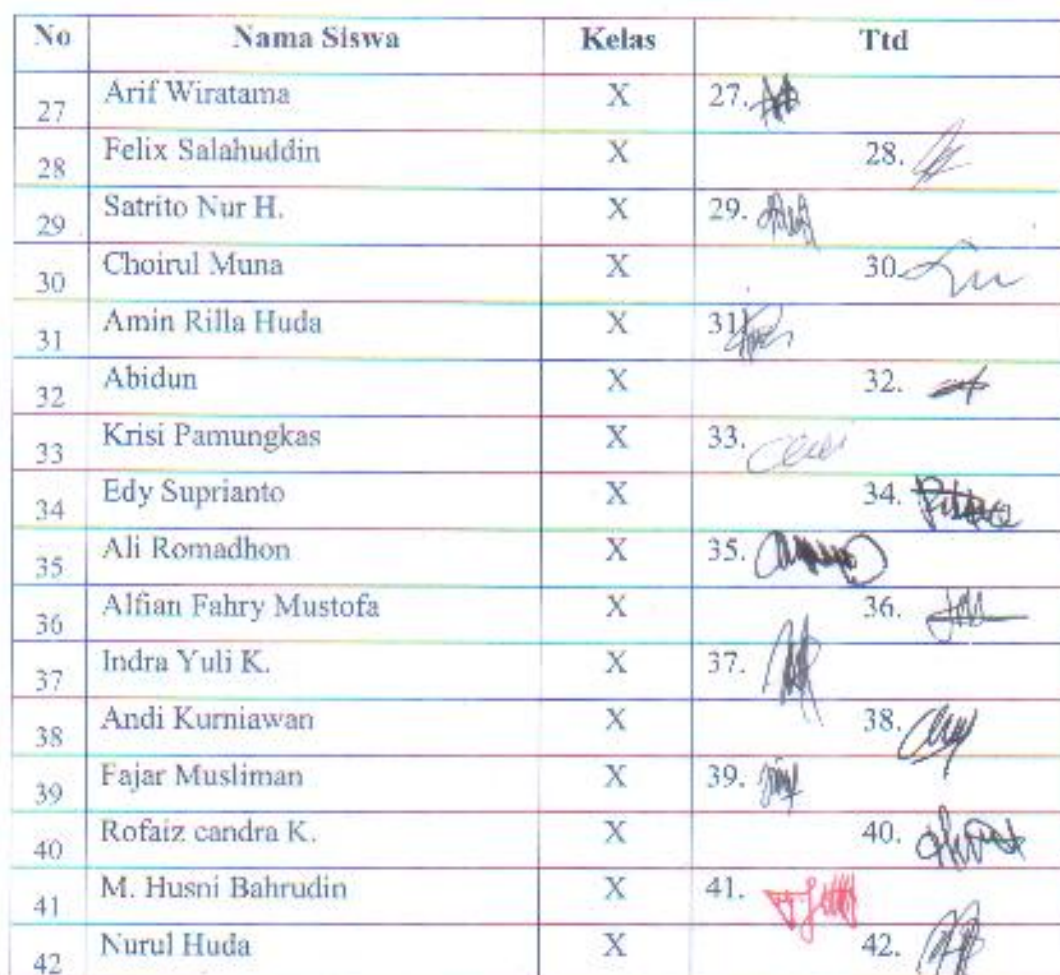 No Nama Siswa Kelas Ttd
27 Arif Wiratama X 27.
28 Felix Salahuddin X 28.
29 Satrito Nur H. X 29.
30 Choirul Muna X 30.
31 Amin Rilla Huda X 31
32 Abidun X 32.
33 Krisi Pamungkas X 33.
34 Edy Suprianto X 34.
35 Ali Romadhon X 35.
36 Alfian Fahry Mustofa X 36.
37 Indra Yuli K. X 37.
38 Andi Kurniawan X 38.
39 Fajar Musliman X 39.
40 Rofaiz candra K. X 40.
41 M. Husni Bahrudin X 41.
42 Nurul Huda X 42.